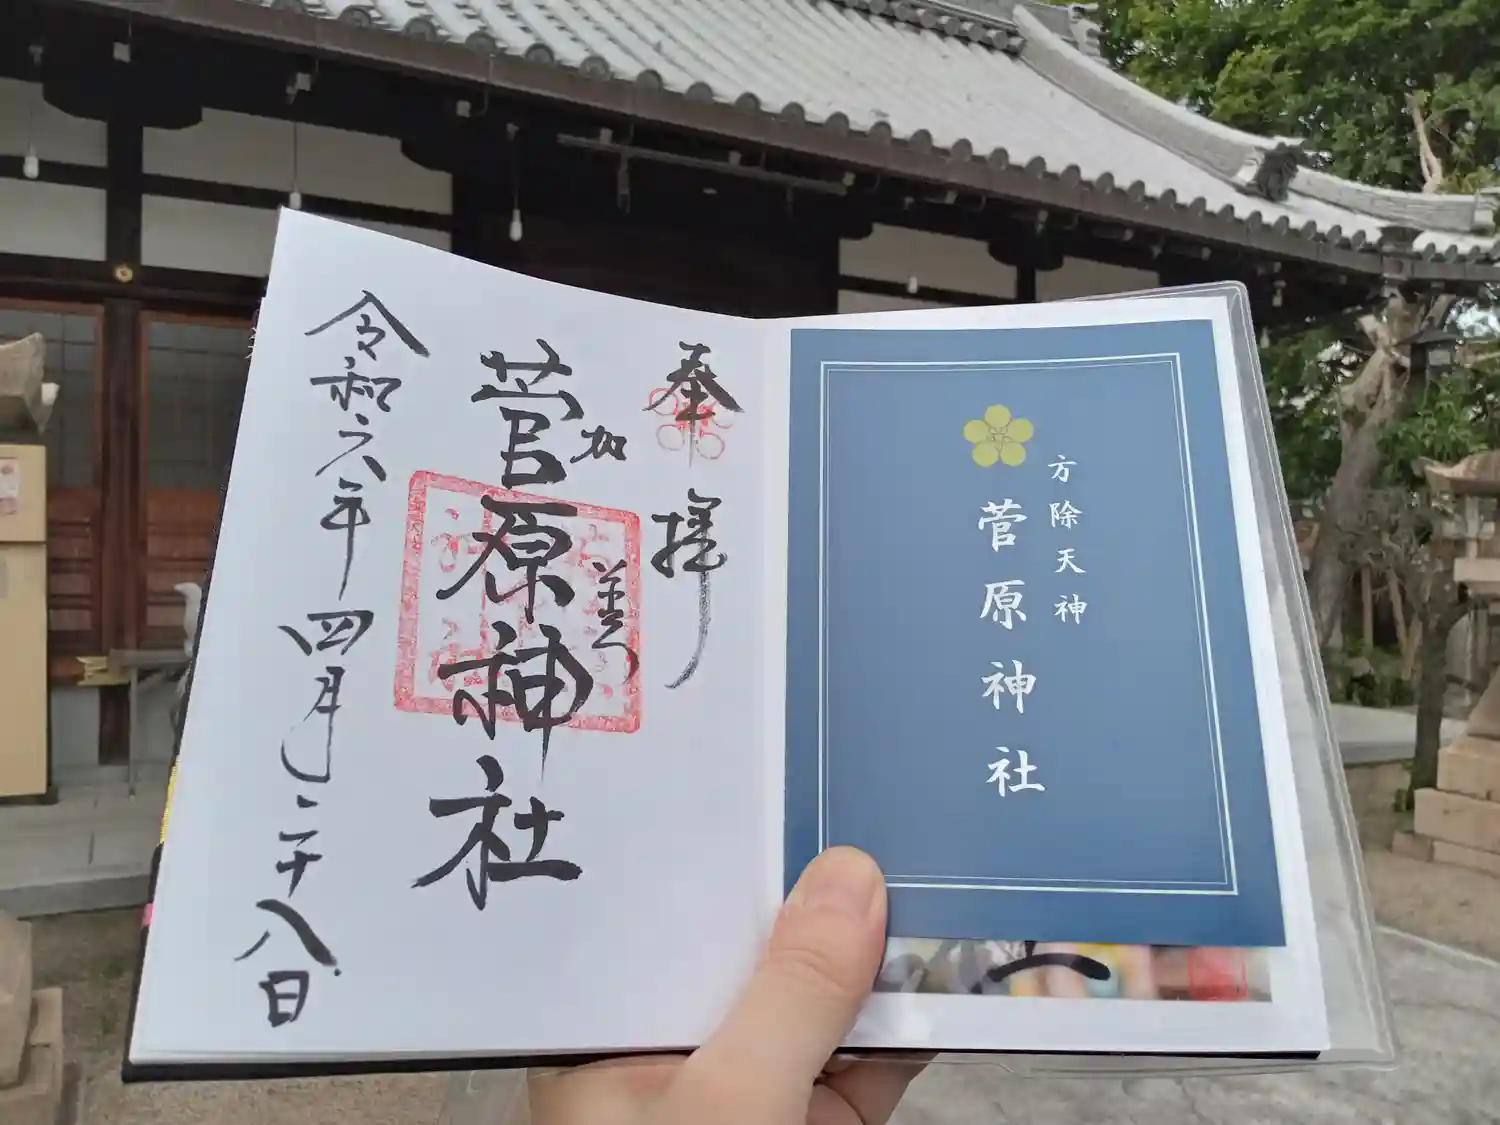 奉拝
加美
菅原神社
令和六年四月二十八日
方除天神
菅原神社